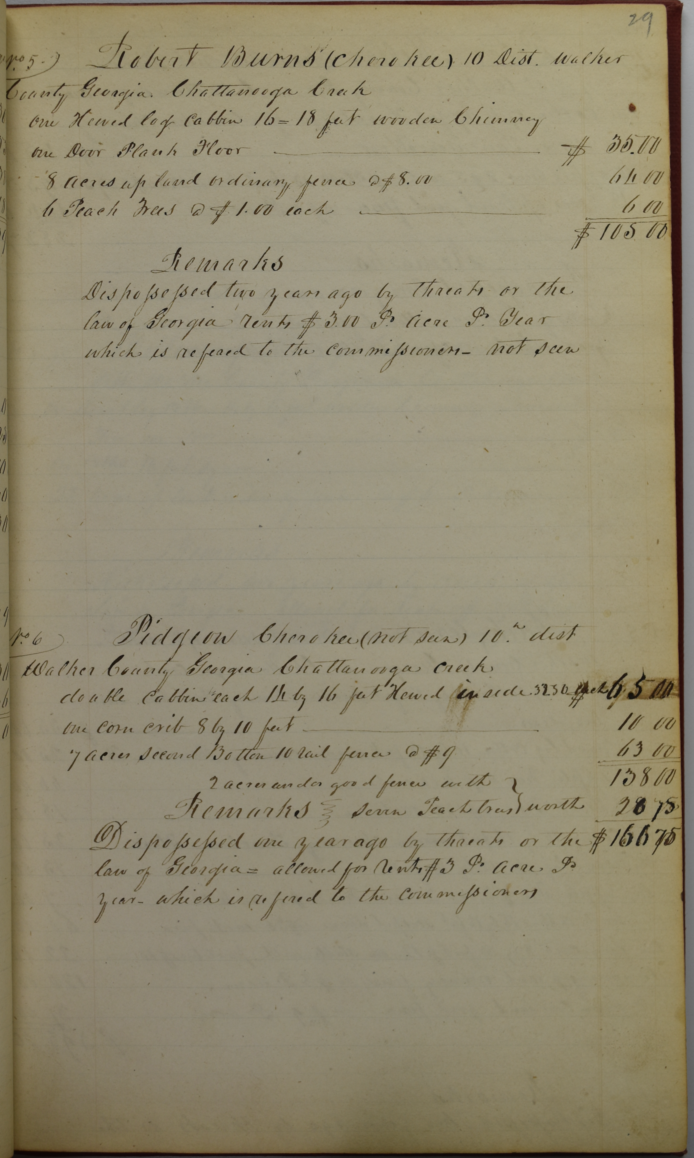 29
No 5 Robert Burns (Cherokee) 10 Dist. Walker
County Georgia. Chattanooga Creek
one Hewed log Cabbin 16 = 18 feet wooden Chimney
one Door Plank Floor $ 35.00
8 acres up land ordinary fence @ $8.00 64 00
6 Peach Trees @ $1.00 each 6 00
$ 105 00
Remarks
Dispossessed two years ago by threats or the
law of Georgia rents $3.00 Pr. Acre Pr. Year
which is refered to the commissioners - not seen
No 6 Pidgion Cherokee (not seen) 10th dist
Walker County Georgia Chattanooga creek
double Cabbin each 14 by 16 feet Hewed inside 65 00
one corn crib 8 by 10 feet 10 00
7 acres Second Bottom 10 rail fence @ $9 63 00
2 acres under good fence with 138 00
Remarks seven Peach trees worth 28 75
Dispossessed one year ago by threats or the $166 75
law of Georgia = allowed for rents $3 Pr. Acre. Pr
year - which is refered to the commissioners